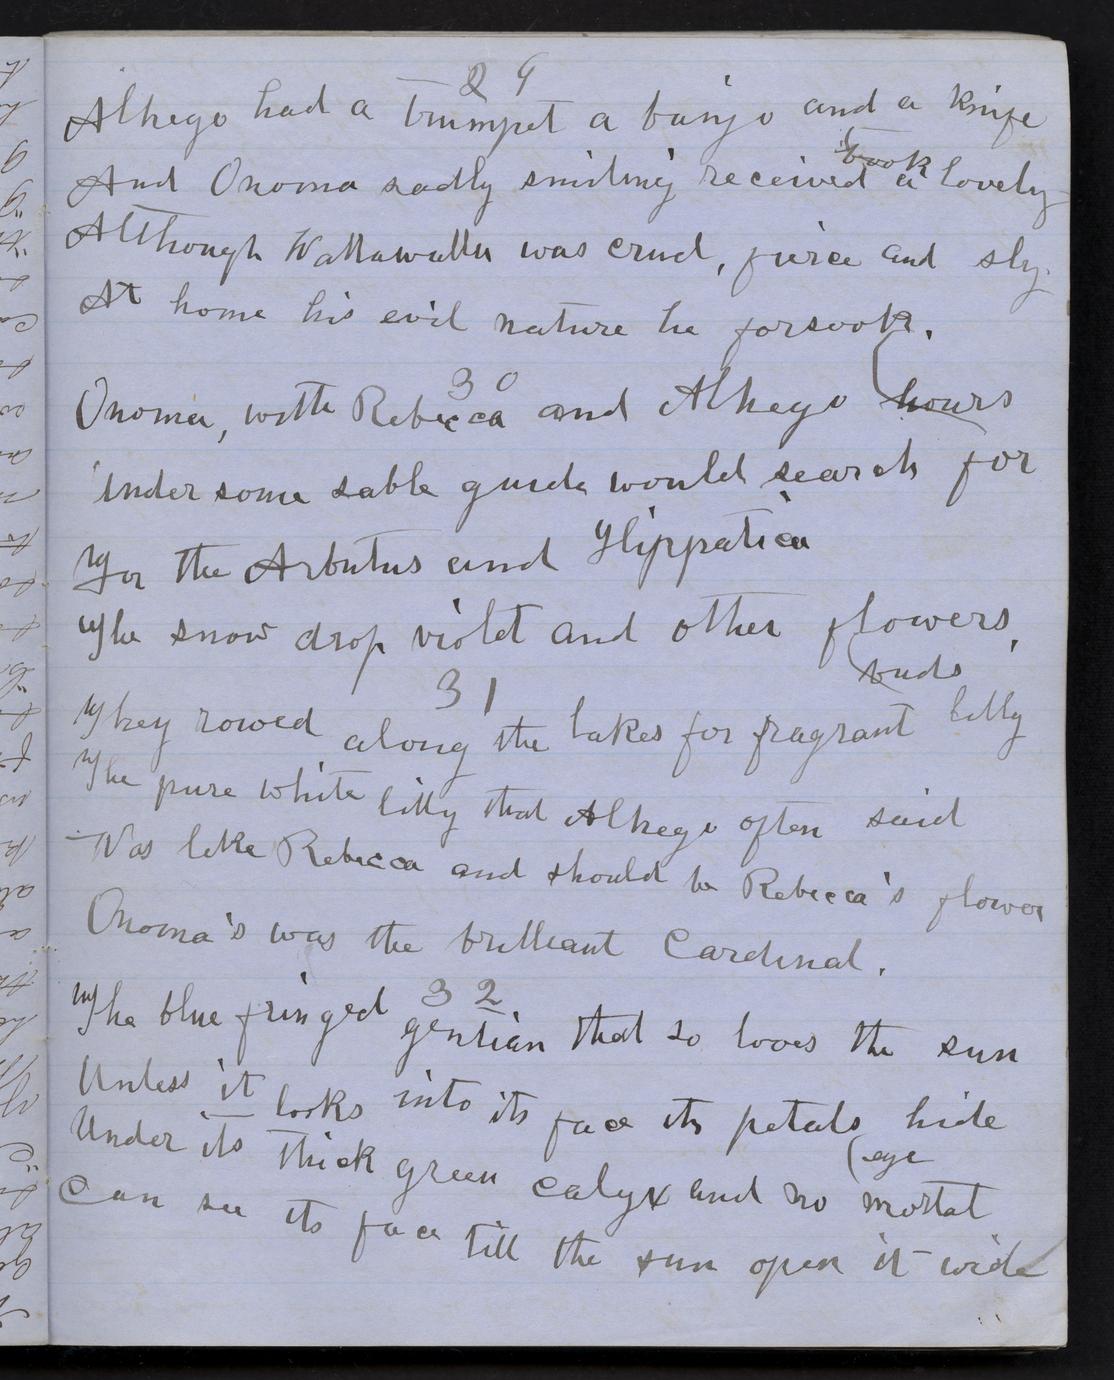 29
Alhego had a trumpet a banjo and a knife
And Onoma sadly smiling received a lovely
book
Although Wattawattu was cruel, fierce and sly
At home his evil nature he forsook.
30
Onoma, with Rebecca and Alhego
hours
Under some sable guide would search for
For the Arbutus and Hippatica
The snow drop violet and other flowers,
31
buds
They rowed along the lakes for fragrant lilly
The pure white lilly that Alhego often said
Was like Rebecca and should be Rebecca's flower
Onoma's was the brilliant Cardinal.
32
The blue fringed gentian that so loves the sun
Unless it looks into its face its petals hide
Under its thick green calyx and no mortal
eye
Can see its face till the sun open it wide